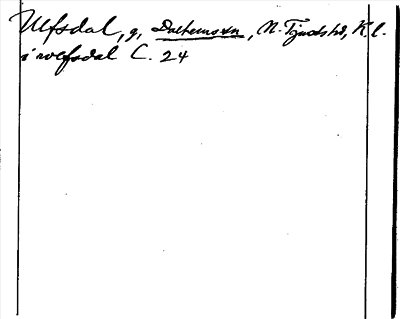 Ulfsdal, g, Dalhemssn, N. Tjustshd, K l.
i wlfsdal C. 24